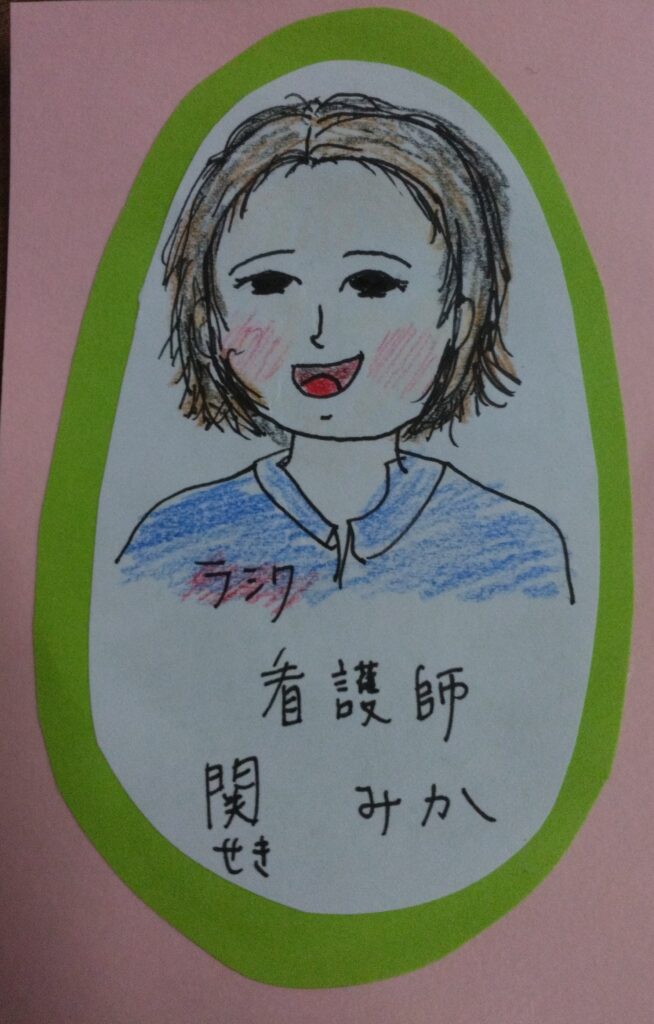 ラシク
看護師
関 みか
せき